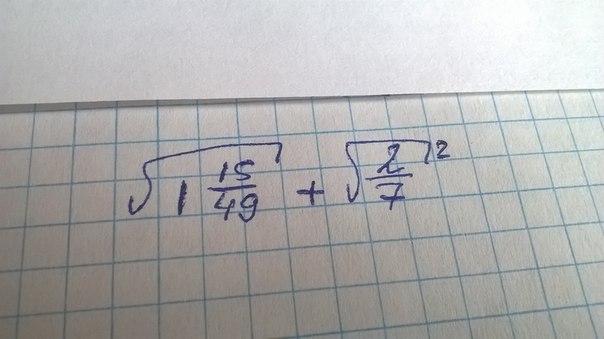 √(1 15/49) + √(2/7)²